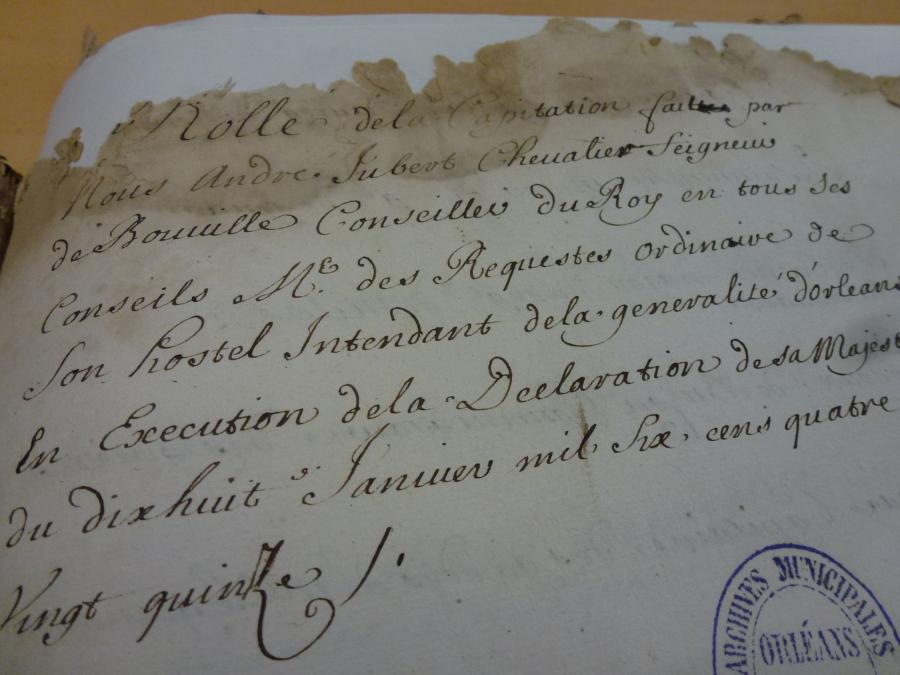 Rolle dela Capitation faitte par
Nous Andre Jubert Chevalier Seigneur
de Bouville Conseiller du Roy en tous ses
Conseils Me. des Requestes ordinaire de
Son hostel Intendant dela generalité d'orleans
En Execution dela Declaration de sa Majest
du dixhuit Janvier mil six cens quatre
Vingt quinze /.
ARCHIVES MUNICIPALES
ORLÉANS